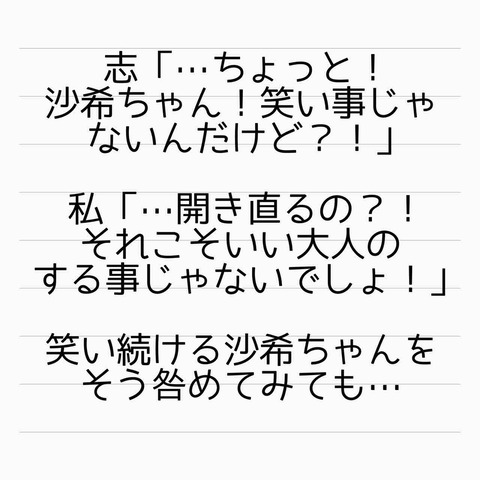 志「…ちょっと！
沙希ちゃん！笑い事じゃ
ないんだけど？！」
私「…開き直るの？！
それこそいい大人の
する事じゃないでしょ！」
笑い続ける沙希ちゃんを
そう咎めてみても…